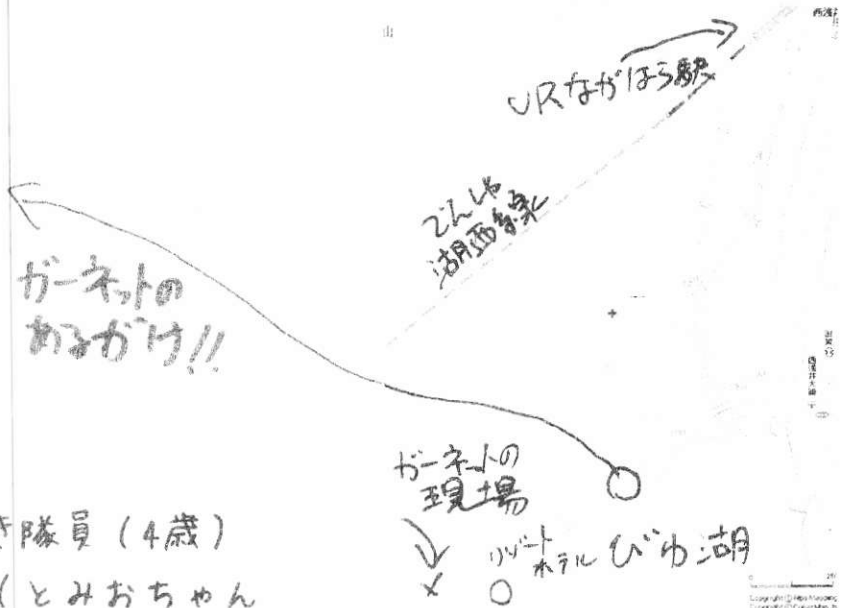 山
JRながはら駅
でんしゃ
湖西線
ガーネットの
あるがけ!!
西浅井大浦
ガーネットの
現場
リゾート
ホテル
びわ湖
隊員(4歳)
とみおちゃん